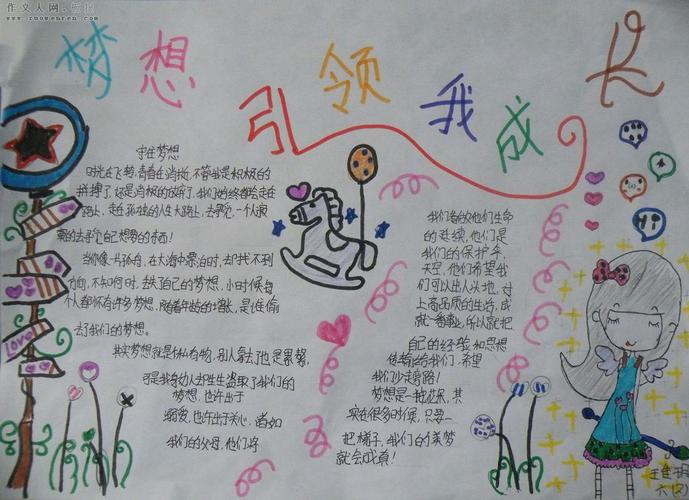 作文人网·板报
www.zuowenren.com
梦想
引领我成长
守住梦想
时光在飞梦,青春在消逝,不管我是积极的
拼搏了,还是消极的放弃了,我们始终都会走在
路上,走在孤独的人生大路上,去争论,一个人寂
寞的去争论自己想要的东西!
当你像一只孤舟,在大海中漂泊时,却找不到
方向,不知何时,缺失自己的梦想,小时候每
个人都怀有许多梦想,随着年龄的增长,是谁偷
去了我们的梦想。
其实梦想就是你私有物,别人拿去了也是累赘,
可是我身幼人却生生盗取了我们的
梦想,也许出于
溺爱,也许出于关心,诸如
我们的父母,他们将
我们看做他们生命
的延续,他们是
我们的保护伞,
天空,他们希望我
们可以出人头地,对
上高品质的生活,成
就一番事业,所以就把
自己的经验和思想
传输给我们,希望
我们少走弯路!
梦想是一枝花朵,其
实在很多时候,只要一
把梯子,我们的美梦
就会成真!
Love